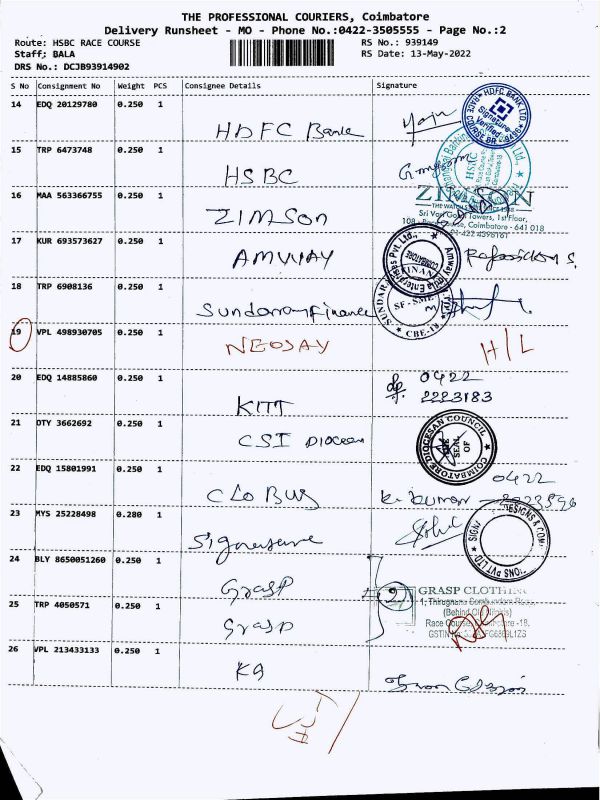 THE PROFESSIONAL COURIERS, Coimbatore
Delivery Runsheet - MO - Phone No.:0422-3505555 - Page No.:2
Route: HSBC RACE COURSE
RS No.: 939149
Staff; BALA
RS Date: 13-May-2022
DRS No.: DCJB93914902
S No Consignment No Weight PCS Consignee Details Signature
14 EDQ 20129780 0.250 1 HDFC Bank
15 TRP 6473748 0.250 1 HSBC
16 MAA 563366755 0.250 1 ZIMSON
ZIMSON
Sri Vari Gokul Towers, 1st Floor,
108, Race Course, Coimbatore - 641 018
17 KUR 693573627 0.250 1 AMWAY
Amway India Enterprises Pvt. Ltd.,
18 TRP 6908136 0.250 1 Sundaram Finance
SUNDARAM FINANCE
CBE-18
19 VPL 498930705 0.250 1 NEOJAY H/L
20 EDQ 14885860 0.250 1 KITT 0422
2223183
21 OTY 3662692 0.250 1 CSI Diocesan
COIMBATORE DIOCESAN COUNCIL
SEAL OF
22 EDQ 15801991 0.250 1 CLOBUS K. Kumar 0422
23 MYS 25228498 0.280 1
DESIGNS & COM
24 BLY 8650051260 0.250 1 Grasp
GRASP CLOTHING
(Behind
Race Course, Coimbatore -18.
25 TRP 4050571 0.250 1 Grasp
26 VPL 213433133 0.250 1 K9